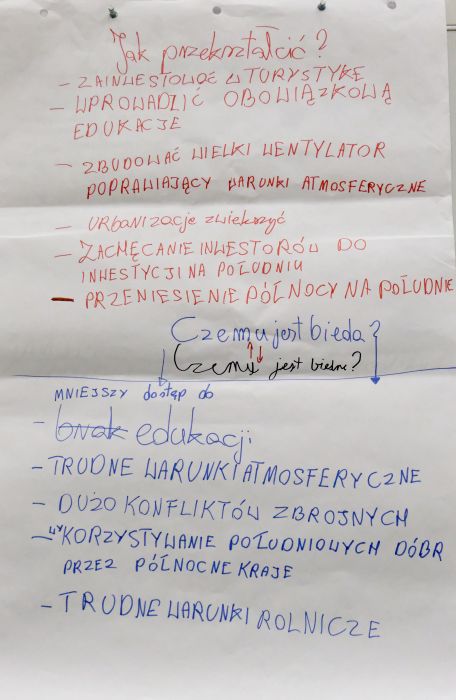 Jak przekształcić?
- ZAINWESTOWAĆ W TURYSTYKĘ
- WPROWADZIĆ OBOWIĄZKOWĄ
EDUKACJE
- ZBUDOWAĆ WIELKI WENTYLATOR
POPRAWIAJĄCY WARUNKI ATMOSFERYCZNE
- URbANIZACJE zwiększyć
- ZACHĘCANIE INWESTORÓW DO
INWESTYCJI NA POŁUDNIU
- PRZENIESIENIE PÓŁNOCY NA POŁUDNIE
Czemu jest bieda?
Czemu jest biedne?
MNIEJSZY dostęp do
- brak edukacji
- TRUDNE WARUNKI ATMOSFERYCZNE
- DUŻO KONFLIKTÓW ZBROJNYCH
- WYKORZYSTYWANIE POŁUDNIOWYCH DÓBR
PRZEZ PÓŁNOCNE KRAJE
- TRUDNE WARUNKI ROLNICZE